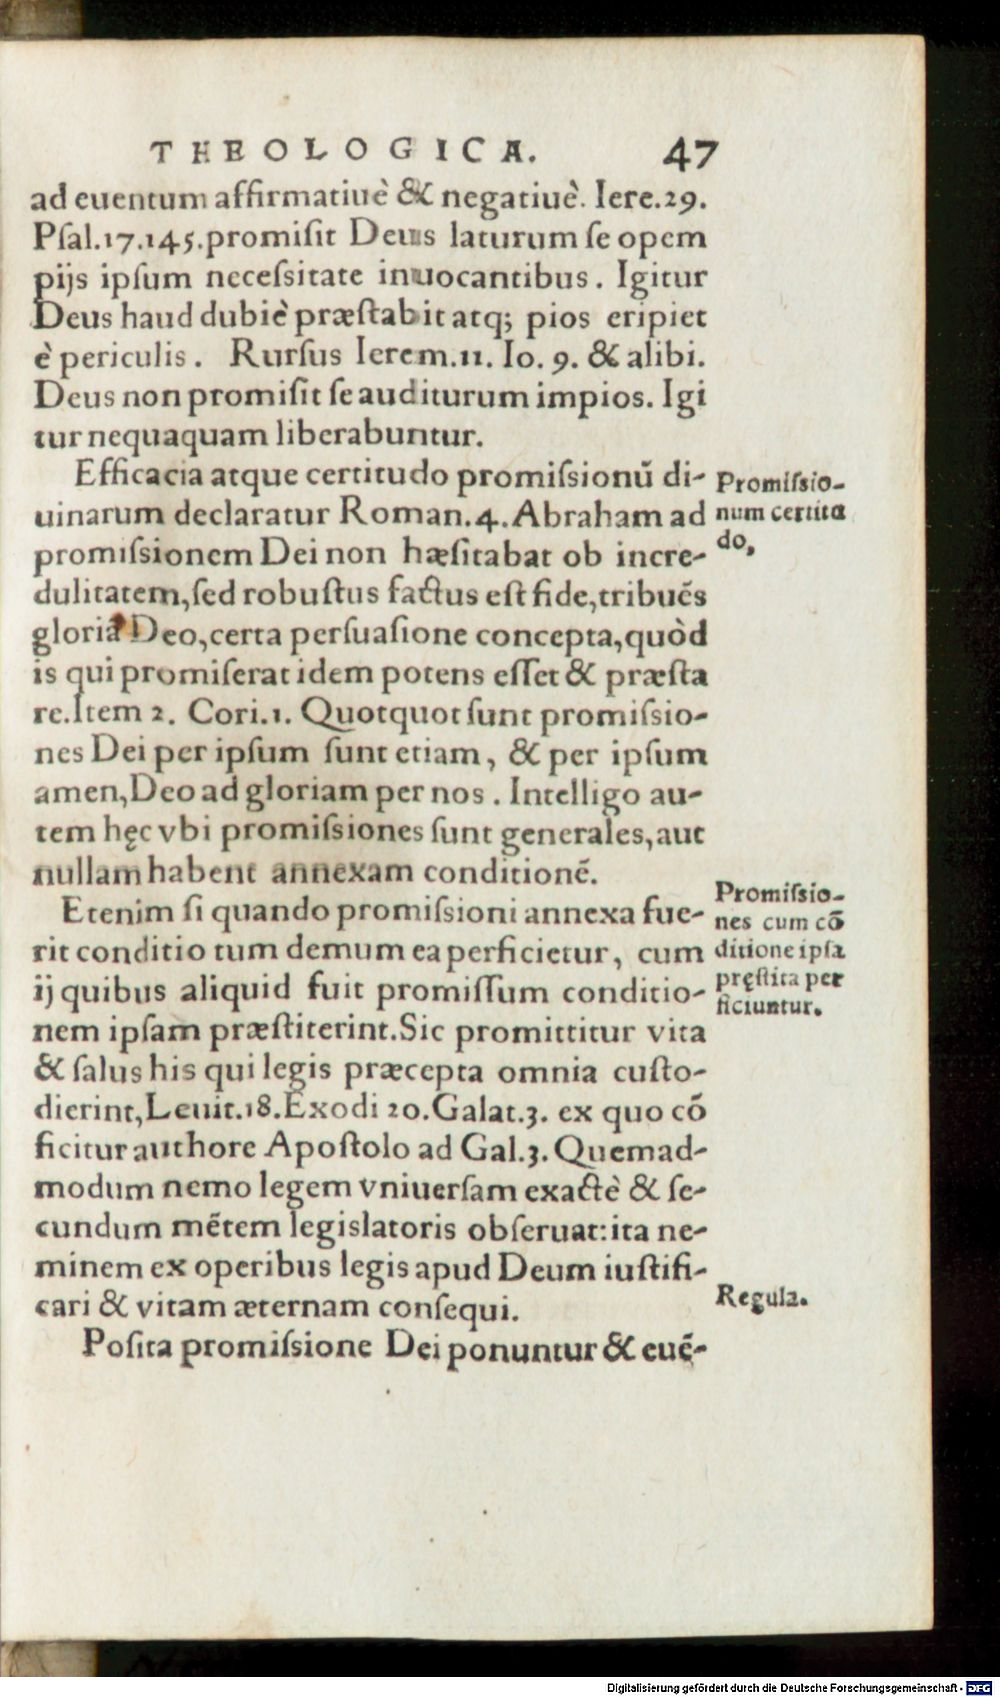 THEOLOGICA. 47
ad euentum affirmatiuè & negatiuè. Iere.29.
Pſal.17.145.promiſit Deus laturum ſe opem
pijs ipſum neceſsitate inuocantibus. Igitur
Deus haud dubiè præſtabit atq; pios eripiet
è periculis. Rurſus Ierem.11. Io. 9. & alibi.
Deus non promiſit ſe auditurum impios. Igi
tur nequaquam liberabuntur.
Efficacia atque certitudo promiſsionũ di-
uinarum declaratur Roman.4. Abraham ad
promiſsionem Dei non hæſitabat ob incre-
dulitatem, ſed robuſtus factus eſt fide, tribuẽs
gloriã Deo, certa perſuaſione concepta, quòd
is qui promiſerat idem potens eſſet & præſta
re. Item 2. Cori.1. Quotquot ſunt promiſsio-
nes Dei per ipſum ſunt etiam, & per ipſum
amen, Deo ad gloriam per nos. Intelligo au-
tem hęc vbi promiſsiones ſunt generales, aut
nullam habent annexam conditionẽ.
Etenim ſi quando promiſsioni annexa fue-
rit conditio tum demum ea perficietur, cum
ij quibus aliquid fuit promiſſum conditio-
nem ipſam præſtiterint. Sic promittitur vita
& ſalus his qui legis præcepta omnia cuſto-
dierint, Leuit.18. Exodi 20. Galat.3. ex quo cõ
ficitur authore Apoſtolo ad Gal.3. Quemad-
modum nemo legem vniuerſam exactè & ſe-
cundum mẽtem legislatoris obſeruat: ita ne-
minem ex operibus legis apud Deum iuſtifi-
cari & vitam æternam conſequi.
Poſita promiſsione Dei ponuntur & euẽ-
Promiſsio-
num certitu
do,
Promiſsio-
nes cum cõ
ditione ipſa
pręſtita per
ficiuntur.
Regula.
Digitalisierung gefördert durch die Deutsche Forschungsgemeinschaft - DFG